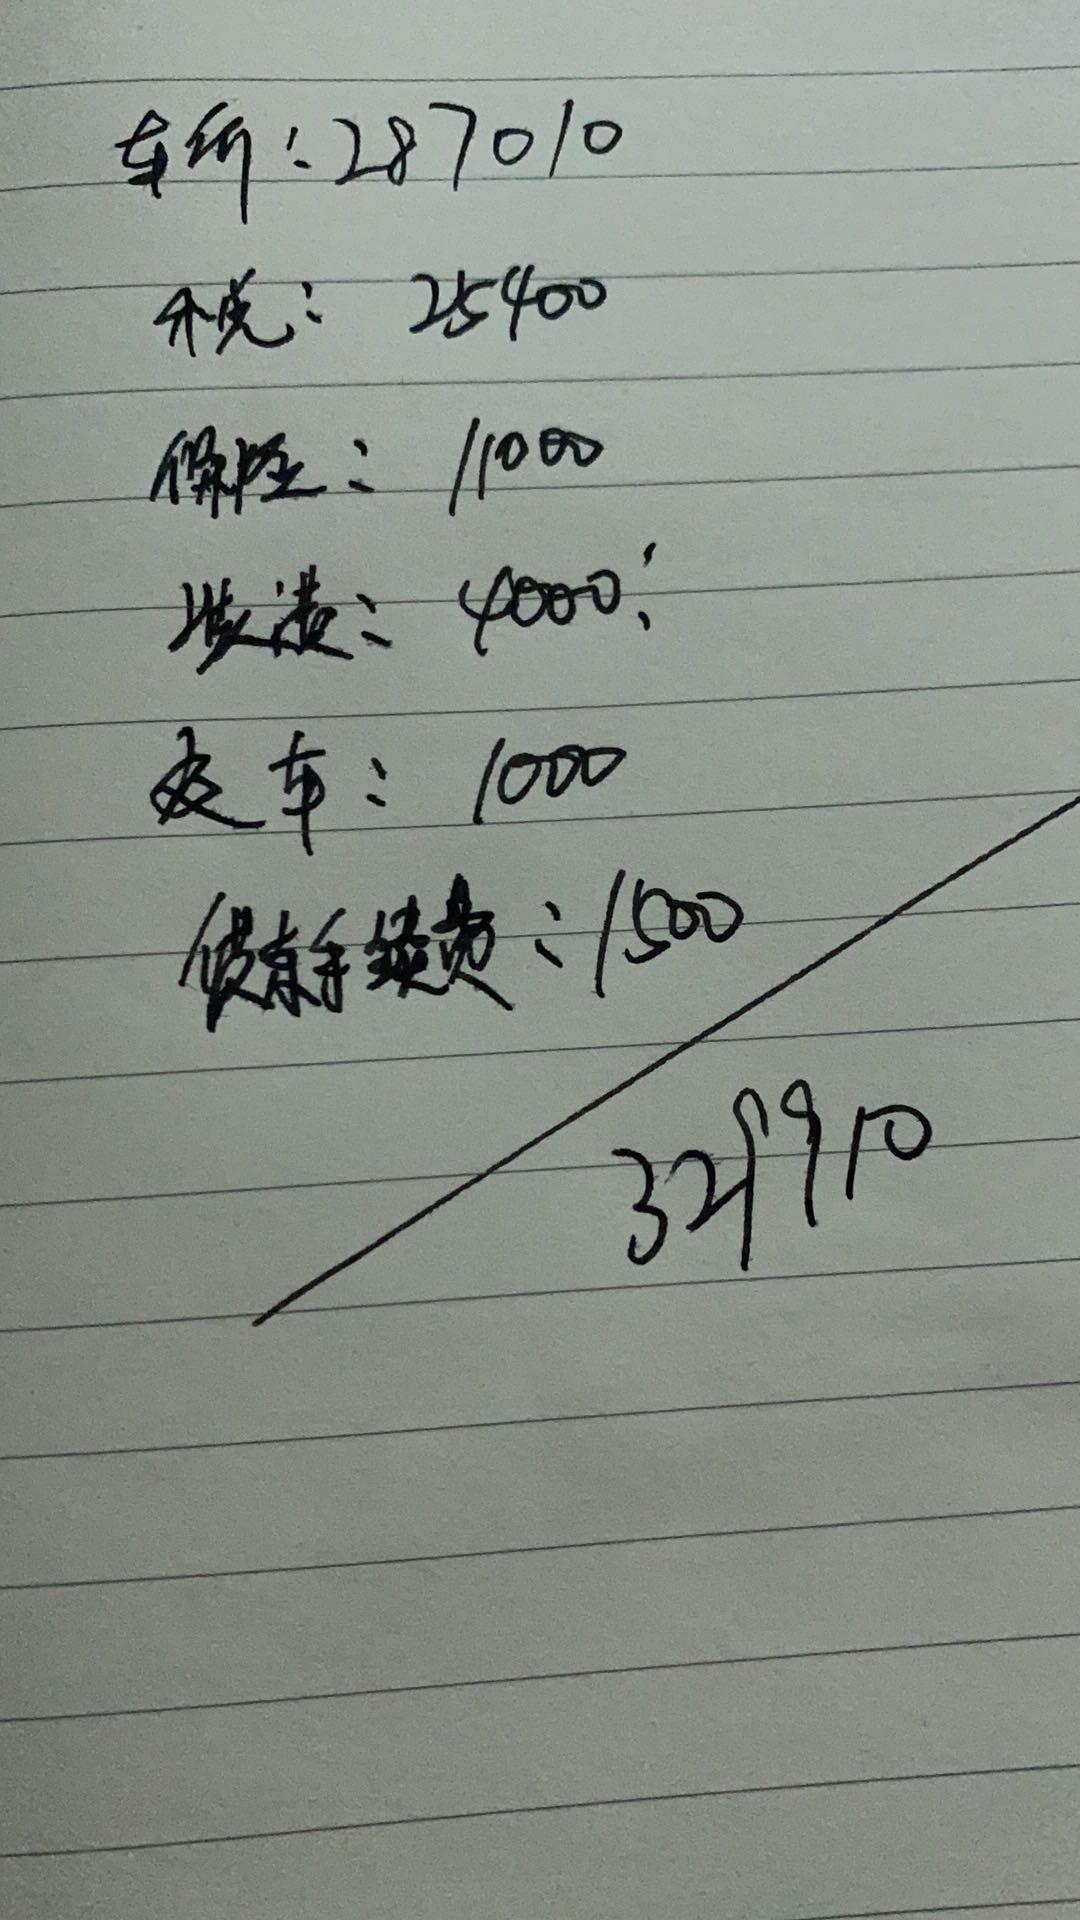 车价:287010
税:25400
保险:11000
装潢:4000
车:1000
手续费:1500
329910